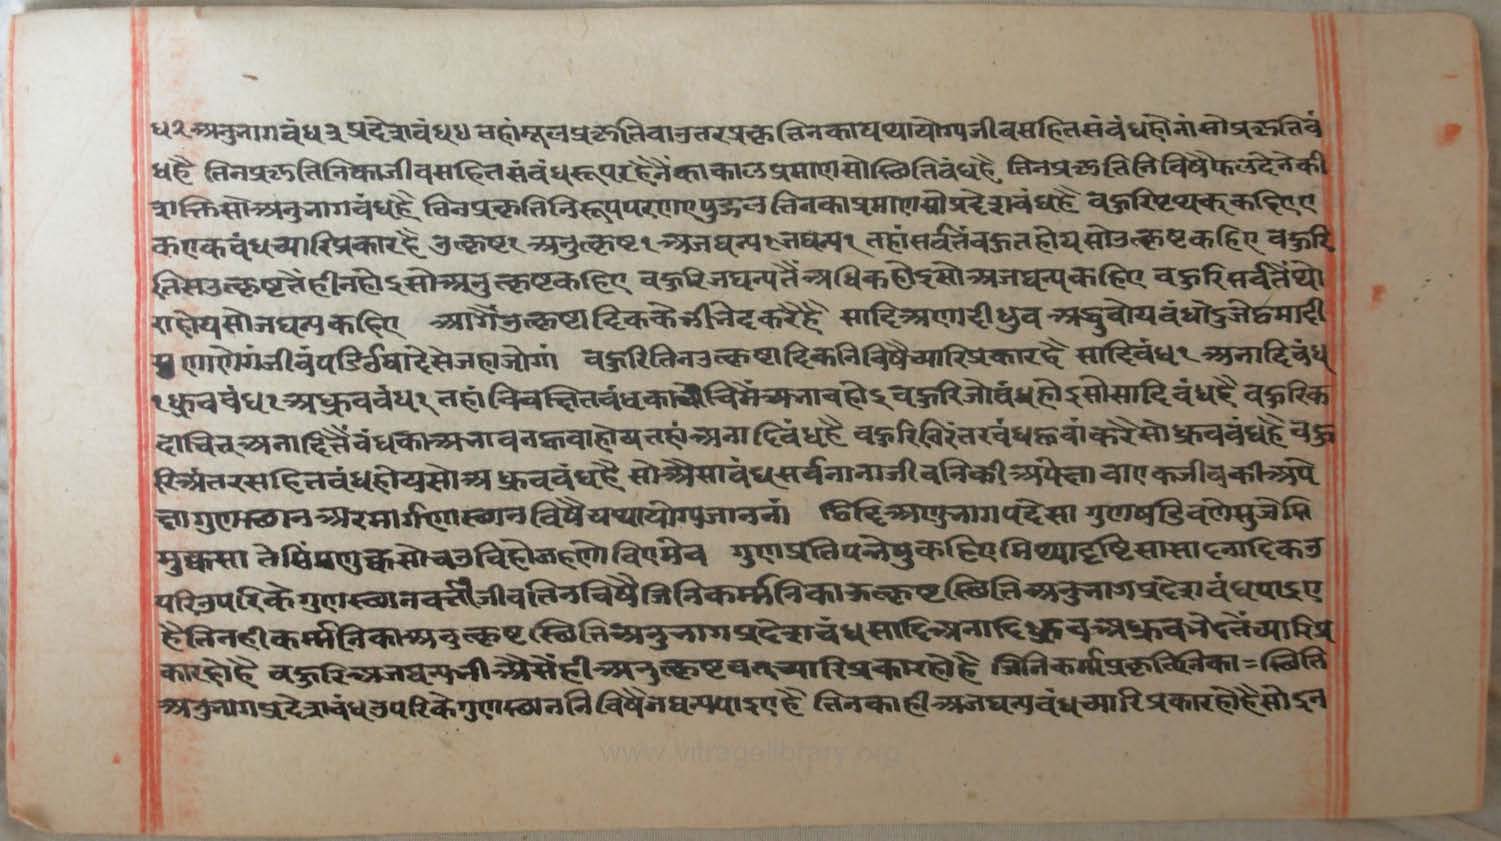 ध२ अनुभागबंध३ प्रदेशबंध४ तहां मूलप्रकृति वा उत्तरप्रकृतिनका यथायोग्य जीव सहित संबंध होनां सो प्रकृतिबं
ध है तिन प्रकृतिनिका जीव सहित संबंधरूप रहनैंका काल प्रमाण सो स्थितिबंध है तिन प्रकृतिनिविषै फल देनेकी
शक्ति सो अनुभागबंध है तिन प्रकृतिनिरूप परणए पुद्गल तिनका प्रमाण सो प्रदेशबंध है बहुरि ए च्यारि कहिए ए
क एक बंध च्यारि प्रकार है उत्कृष्ट१ अनुत्कृष्ट१ अजघन्य१ जघन्य१ तहां सर्वतैं बहुत होय सो उत्कृष्ट कहिए बहुरि
तिस उत्कृष्टतैं हीन होइ सो अनुत्कृष्ट कहिए बहुरि जघन्यतैं अधिक होइ सो अजघन्य कहिए बहुरि सर्वतैं थो
रा होय सो जघन्य कहिए आगैं उत्कृष्टादिकके भी भेद करै है सादि अणादी धुव अद्धुवो य बंधो दु जेट्ठमादी
सु णाणेगं जीवं पडि ओघादेसे जहाजोगं बहुरि तिन उत्कृष्टादिकनिविषै च्यारि प्रकार है सादिबंध१ अनादिबंध
१ ध्रुवबंध१ अध्रुवबंध१ तहां विवक्षित बंधका बीचिमैं अभाव होइ बहुरि जो बंध होइ सो सादिबंध है बहुरि क
दाचित् अनादितैं बंधका अभाव न हूवा होय तहां अनादिबंध है बहुरि निरंतर बंध हूवां करै सो ध्रुवबंध है बहु
रि अंतर सहित बंध होय सो अध्रुवबंध है सो अैसा बंध सर्व नाना जीवनिकी अपेक्षा वा एक जीवकी अपे
क्षा गुणस्थान अर मार्गणास्थानविषै यथायोग्य जाननां ठिदिअणुभागपदेसा गुणपडिवणेसु जेसि
मुक्कसा तेसिंमणुक्कसो चउविहोजहणे वि एमेव गुणप्रतिपन्नेषु कहिए मिथ्यादृष्टि सासादनादिक उ
परि उपरिके गुणस्थानवर्त्ती जीव तिनविषै जिनि कर्म्मनिका उत्कृष्ट स्थिति अनुभाग प्रदेशबंध पाइए
है तिनही कर्म्मनिका अनुत्कृष्ट स्थिति अनुभाग प्रदेशबंध सादि अनादि ध्रुव अध्रुव भेदतैं च्यारि प्र
कार हो है बहुरि अजघन्य भी अैसैंही अनुत्कृष्टवत् च्यारि प्रकार हो है जिनि कर्मप्रकृतिनिका = स्थिति
अनुभाग प्रदेशबंध उपरिके गुणस्थाननिविषै जघन्य पाइए है तिनका ही अजघन्यबंध च्यारि प्रकार हो है सो इन
www.vitragelibrary.org